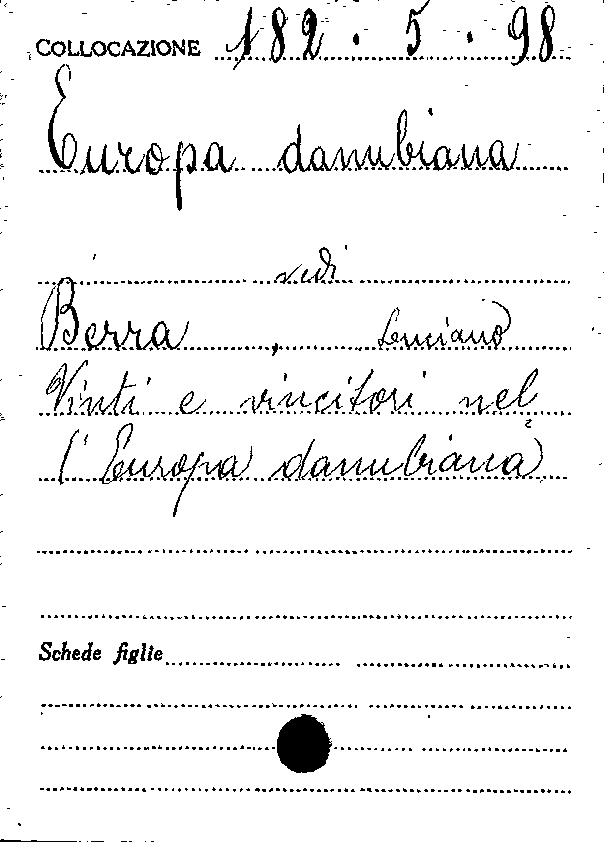 COLLOCAZIONE 182.5.98
Europa danubiana
vedi
Berra, Luciano
Vinti e vincitori nel
l'Europa danubiana
Schede figlie